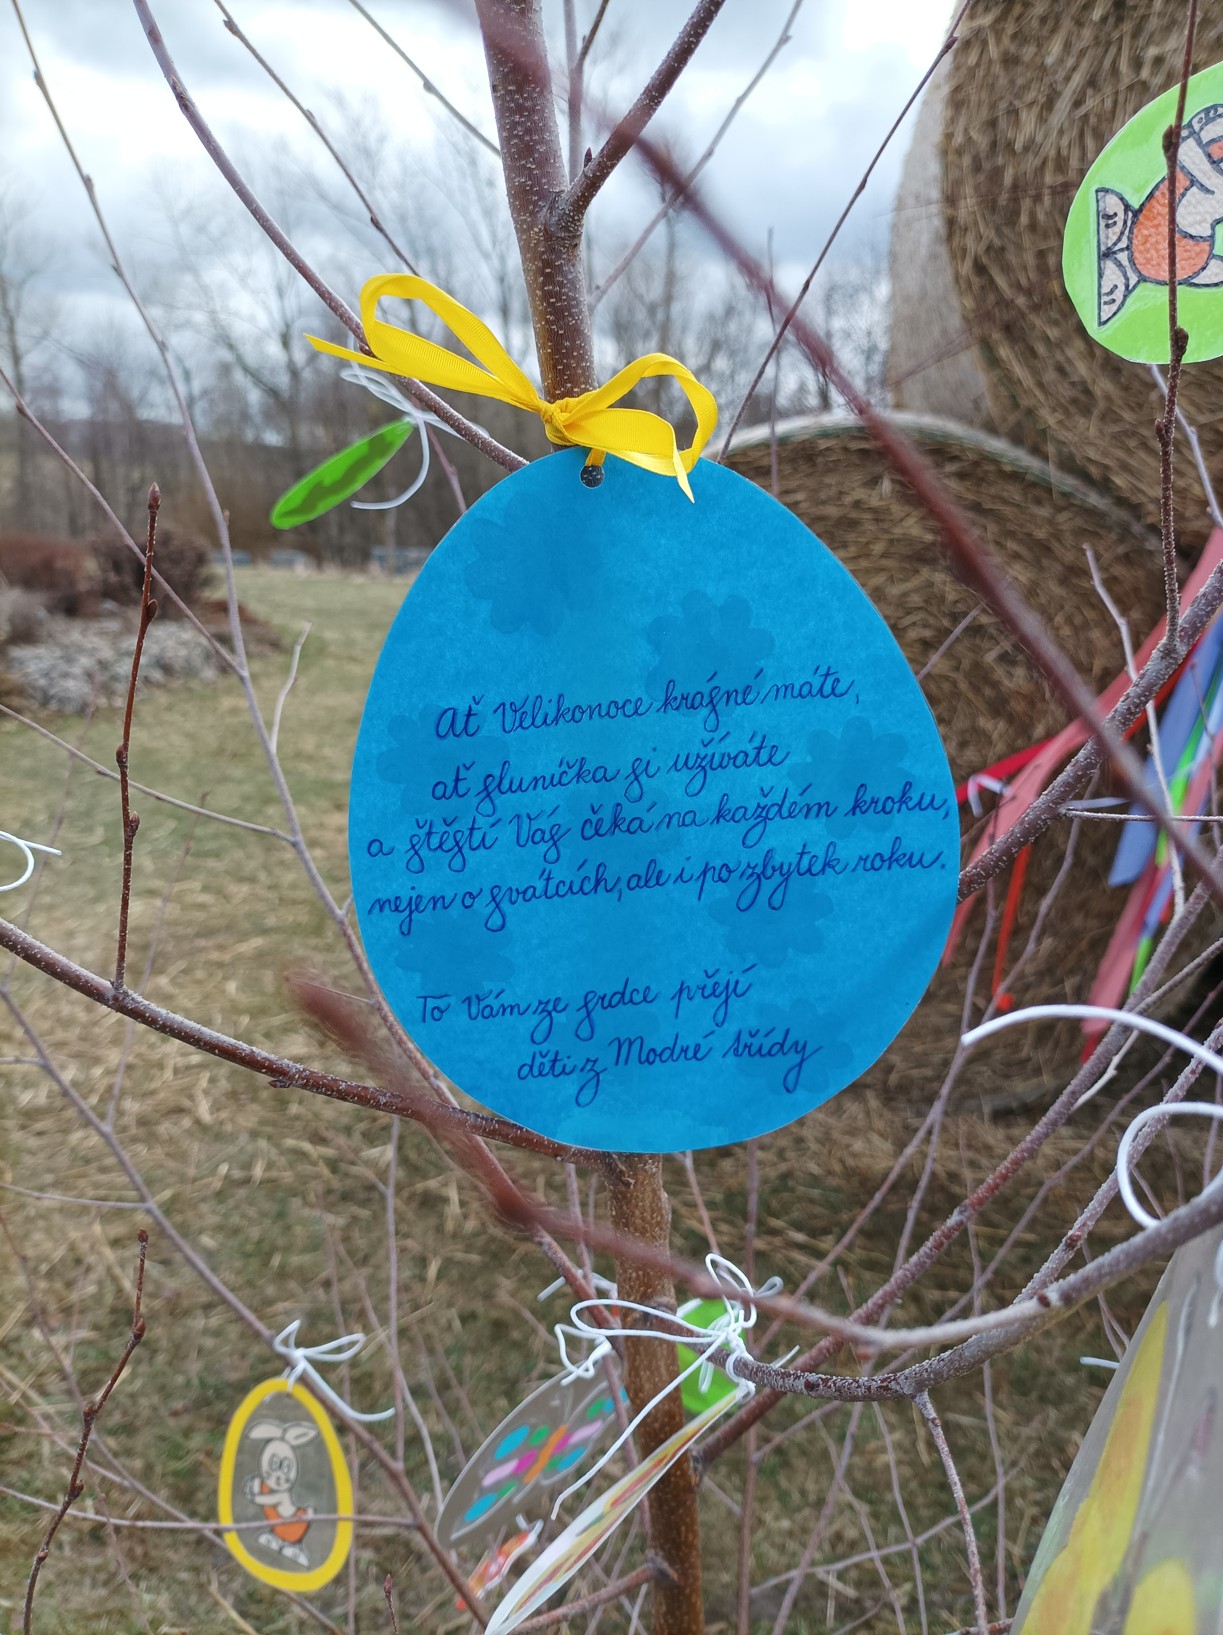 Ať Velikonoce krásné máte,
ať sluníčka si užíváte
a štěstí Vás čeká na každém kroku,
nejen o svátcích, ale i po zbytek roku.
To Vám ze srdce přejí
děti z Modré třídy